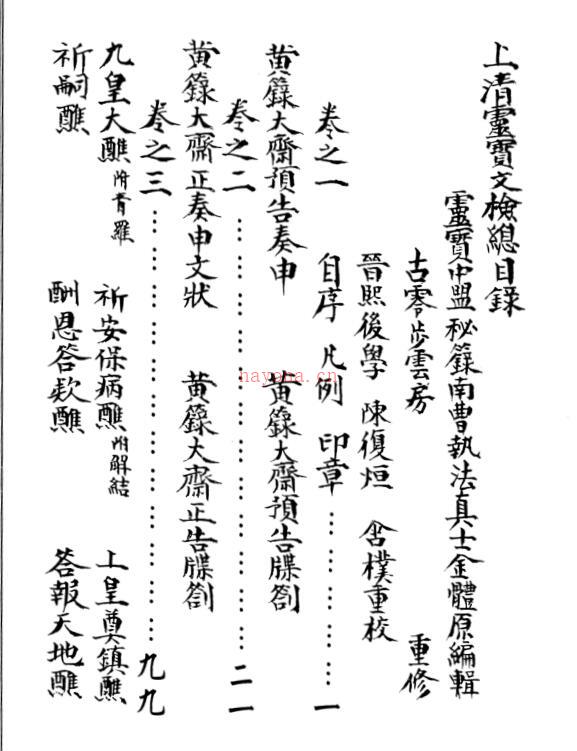 上清靈寶文檢總目錄
靈寶中盟秘籙南曹執法真士金體原編輯
古零步雲房 重修
晉熙後學 陳復烜 含樸重校
卷之一 自序 凡例 印章………………一
黃籙大齋預告奏申 黃籙大齋預告牒劄
卷之二………………………………二一
黃籙大齋正奏申文狀 黃籙大齋正告牒劄
卷之三………………………………九九
九皇大醮附青羅 祈安保病醮附解結 上皇尊鎮醮
祈嗣醮 酬恩答款醮 答報天地醮
nayana.cn